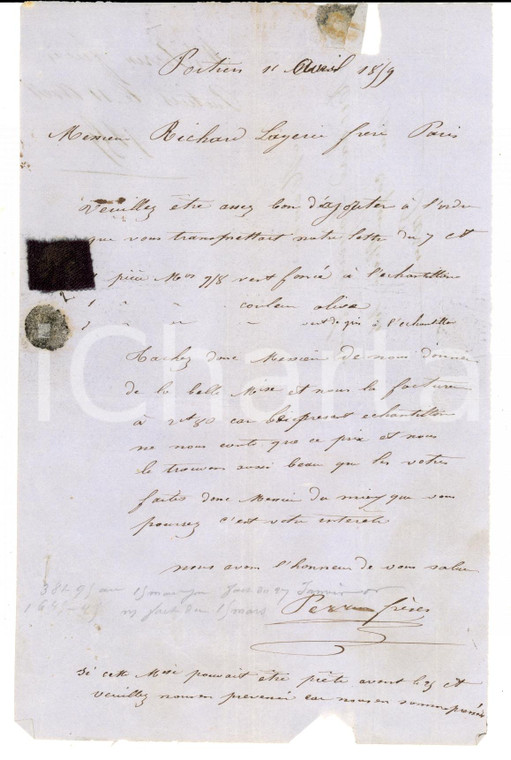 Poitiers 11 Avril 1859
Messieurs Richard Layerie frère Paris
Veuillez être assez bon d'ajouter à l'ordre
que vous transmettait notre lettre du 7 ct
1 pièce Mos 7/8 vert foncé à l'échantillon
1 " " " couleur olive
1 " " " vert de gris à l'echantillon
Tachez donc Messieurs de nous donner
de la belle Mose et nous la facturer
à car le présent echantillon
ne nous coute que ce prix et nous
le trouvons aussi beau que les votres
faites donc Messieurs du mieux que vous
pourrez c'est votre interet
nous avons l'honneur de vous saluer
fact du 27 Janvier
fact du 15 mars
Perrin frères
Si cette Mose pouvait être prête avant le 25 ct
veuillez nous en prevenir car nous en sommes pressés
iCharta